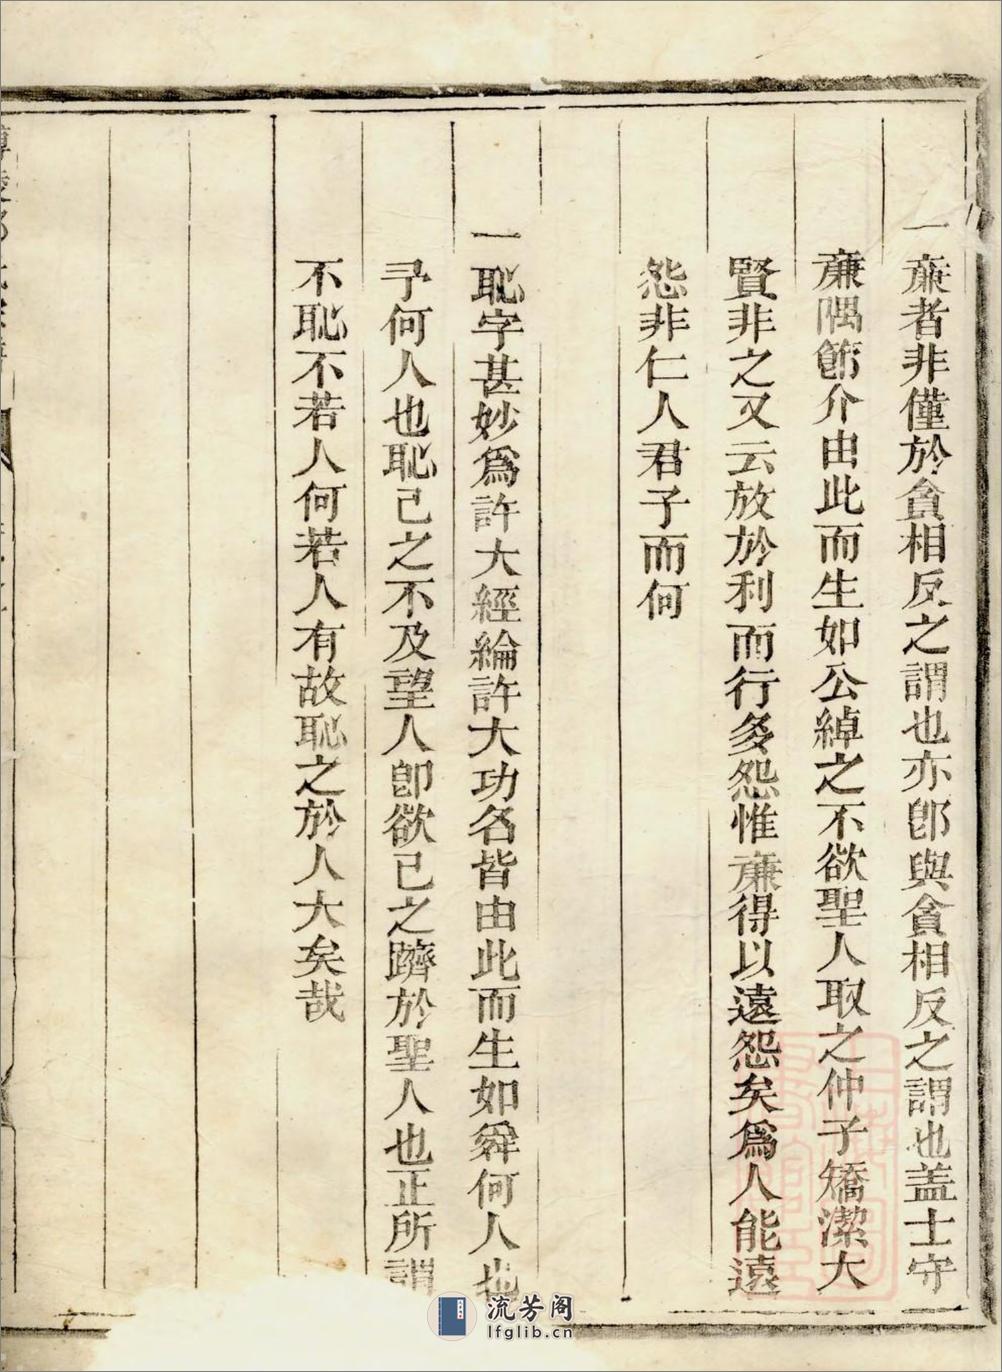 一廉者非僅於貪相反之謂也亦卽與貪相反之謂也盖士守
廉隅節介由此而生如公綽之不欲聖人取之仲子矯潔大
賢非之又云放於利而行多怨惟廉得以遠怨矣爲人能遠
怨非仁人君子而何
一恥字甚妙爲許大經綸許大功名皆由此而生如舜何人也
予何人也恥己之不及望人卽欲己之躋於聖人也正所謂
不恥不若人何若人有故恥之於人大矣哉
流芳阁
lfglib.cn